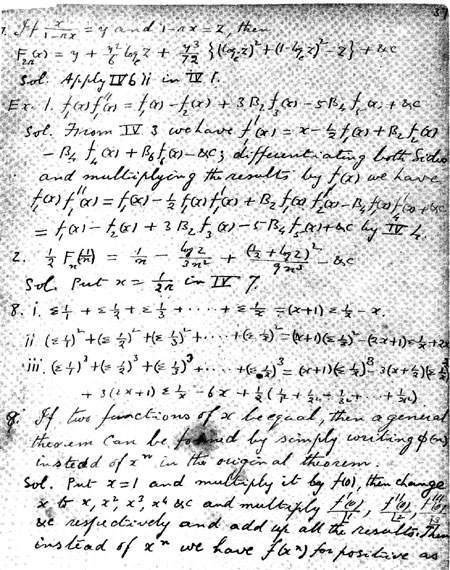 37
7. If x/(1-nx) = y and 1-nx = z, then
F_{2n}(x) = y + y²/6 log_e z + y³/72 {(log_e z)² + (1-log_e z)² - z} + &c
Sol. Apply IV 6 ii in IV 1.
Ex. 1. f₁(x) f₁''(x) = f₁(x) - f₂(x) + 3B₂ f₃(x) - 5B₄ f₅(x) + &c
Sol. From IV 3 we have f₁'(x) = x - ½ f₁(x) + B₂ f₂(x)
- B₄ f₄(x) + B₆ f₆(x) - &c; differentiating both sides
and multiplying the results by f₁(x) we have
f₁(x) f₁''(x) = f₁(x) - ½ f₁(x) f₁'(x) + B₂ f₁(x) f₂'(x) - B₄ f₁(x) f₄'(x) + &c
= f₁(x) - f₂(x) + 3B₂ f₃(x) - 5B₄ f₅(x) + &c by IV 4.
2. ½ F_n(1/n) = 1/n - log 2/3n² + &c
Sol. Put x = 1/2n in IV 7.
8. i. Σ1/1 + Σ1/2 + Σ1/3 + ····· + Σ1/x = (x+1) Σ1/x - x.
ii (Σ1/1)² + (Σ1/2)² + (Σ1/3)² + ····· + (Σ1/x)² = (x+1)(Σ1/x)² - (2x+1) Σ1/x + 2x
iii (Σ1/1)³ + (Σ1/2)³ + (Σ1/3)³ ····· + (Σ1/x)³ = (x+1)(Σ1/x)³ - 3(x+½)(Σ1/x)²
+ 3(2x+1) Σ1/x - 6x + ½(1/1 + 1/2 + 1/3 + ···· + 1/x)
8. If two functions of x be equal, then a general
theorem can be formed by simply writing φ(n)
instead of xⁿ in the original theorem.
Sol. Put x = 1 and multiply it by f(0), then change
x to x, x², x³, x⁴ &c and multiply f'(0)/⌊1, f''(0)/⌊2, f'''(0)/⌊3
&c respectively and add up all the results. Then
instead of xⁿ we have f(xⁿ) for positive as